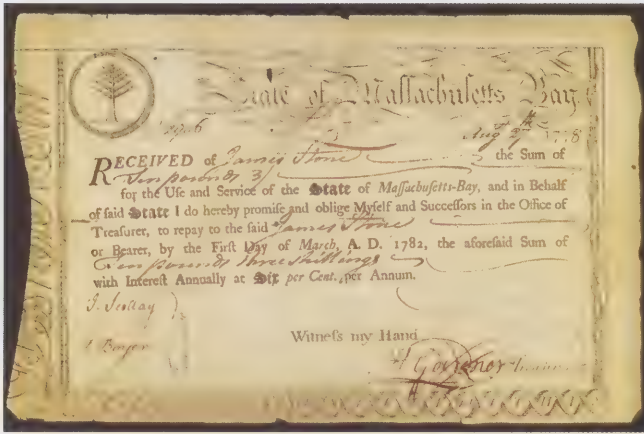 State of Massachusetts Bay
Augt 1778
RECEIVED of James Stone the Sum of
Ten pounds 3/
for the Use and Service of the State of Massachusetts-Bay, and in Behalf
of said State I do hereby promise and oblige Myself and Successors in the Office of
Treasurer, to repay to the said James Stone
or Bearer, by the First Day of March, A. D. 1782, the aforesaid Sum of
Ten pounds three shillings
with Interest Annually at Six per Cent. per Annum.
J. Scollay
Witness my Hand
H Gardner